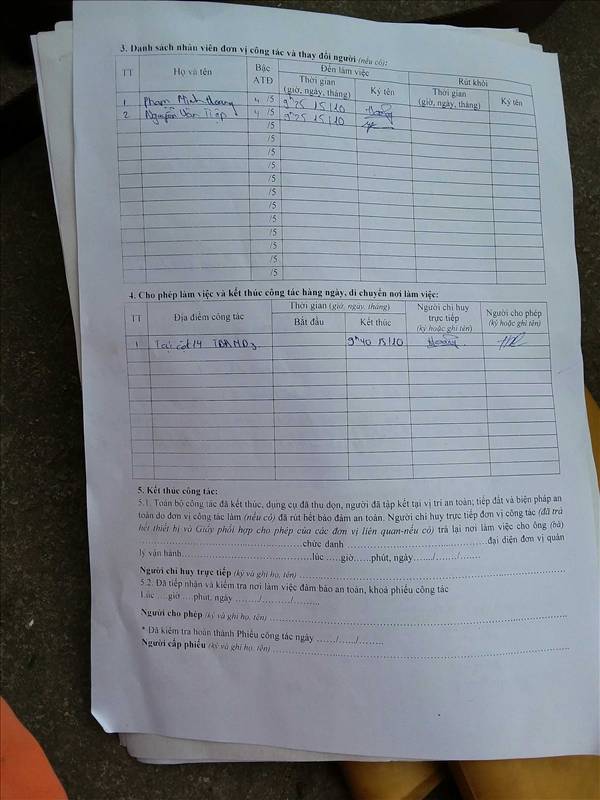 3. Danh sách nhân viên đơn vị công tác và thay đổi người (nếu có):
TT Họ và tên Bậc ATĐ Đến làm việc Rút khỏi
Thời gian (giờ, ngày, tháng) Ký tên Thời gian (giờ, ngày, tháng) Ký tên
1 Phạm Minh Hoàng 4 /5 9h25 15/10 Hoàng
2 Nguyễn Văn Tiệp 4 /5 9h25 15/10
/5
/5
/5
/5
/5
/5
/5
/5
/5
/5
/5
/5
4. Cho phép làm việc và kết thúc công tác hàng ngày, di chuyển nơi làm việc:
TT Địa điểm công tác Thời gian (giờ, ngày, tháng) Người chỉ huy trực tiếp (ký hoặc ghi tên) Người cho phép (ký hoặc ghi tên)
Bắt đầu Kết thúc
1 Tại cột 14 TBA MD3 9h40 15/10 Hoàng
5. Kết thúc công tác:
5.1. Toàn bộ công tác đã kết thúc, dụng cụ đã thu dọn, người đã tập kết tại vị trí an toàn; tiếp đất và biện pháp an
toàn do đơn vị công tác làm (nếu có) đã rút hết bảo đảm an toàn. Người chỉ huy trực tiếp đơn vị công tác (đã trả
hết thiết bị và Giấy phối hợp cho phép của các đơn vị liên quan-nếu có) trả lại nơi làm việc cho ông (bà)
........................................chức danh ........................................đại diện đơn vị quản
lý vận hành........................................lúc .....giờ......phút, ngày....../......./.......
Người chỉ huy trực tiếp (ký và ghi họ, tên) ........................................
5.2. Đã tiếp nhận và kiểm tra nơi làm việc đảm bảo an toàn, khoá phiếu công tác
Lúc ....giờ ....phút, ngày ......./........./.........
Người cho phép (ký và ghi họ, tên) ........................................
* Đã kiểm tra hoàn thành Phiếu công tác ngày ....../....../........
Người cấp phiếu (ký và ghi họ, tên) ........................................